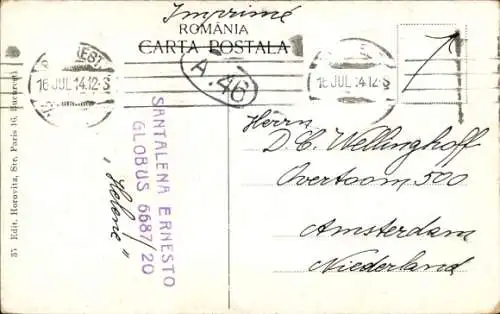 Imprimé
ROMÂNIA
CARTA POSTALA
16 JUL 14.12-S
A. 46
16 JUL 14.12-S
SANTALENA ERNESTO
GLOBUS 6687/20
„Helene"
Herrn
D. C. Wellinghoff
Overtoom 500
Amsterdam
Niederland
Edit. Horovitz, Str. Paris 16, Bucuresti